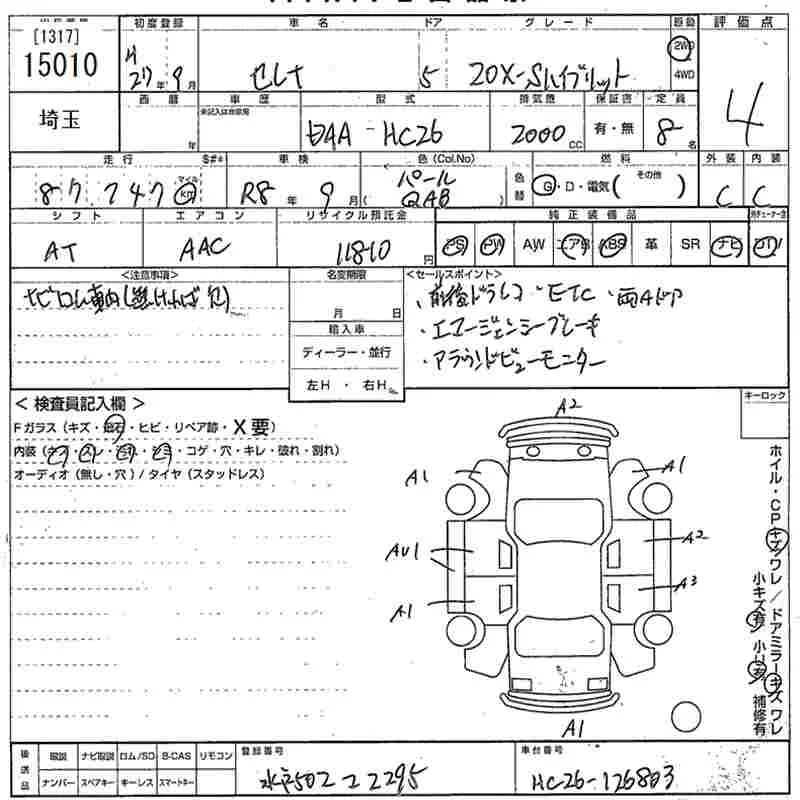 [1317]
15010
埼玉
初度登録
車名
ドア
グレード
評価点
H 27年9月
セレナ
5
20X-Sハイブリット
2WD
4WD
4
西暦
車歴
型式
排気量
保証書
定員
年
未記入は自家用
DAA-HC26
2000cc
有・無
8名
走行
S#*
車検
色(Col.No)
色替
燃料
外装
内装
87747
マイル
km
R8年9月
パール
(QAB)
G・D・電気(その他)
C
C
シフト
エアコン
リサイクル預託金
純正装備品
AT
AAC
11810円
PS
PW
AW
エアB
ABS
革
SR
ナビ
TV
<注意事項>
名変期限
<セールスポイント>
ナビロム車内(無ければ欠)
月 日
・前後ドラレコ・ETC・両Aドア
・エマージェンシーブレーキ
・アラウンドビューモニター
輸入車
ディーラー・並行
左H・右H
<検査員記入欄>
キーロック
Fガラス(キズ・飛石・ヒビ・リペア跡・X要)
内装(キズ・スレ・汚れ・シミ・コゲ・穴・キレ・破れ・割れ)
オーディオ(無し・穴)/タイヤ(スタッドレス)
A2
A1
A1
AU1
A2
A1
A3
A1
ホイル・CPキズワレ/ドアミラーキズワレ
小キズ有 小U有 補修有
後送品
取説
ナビ取説
ロム/SD
B-CAS
リモコン
ナンバー
スペアキー
キーレス
スマートキー
登録番号
水戸502 ユ 2295
車台番号
HC26-126803